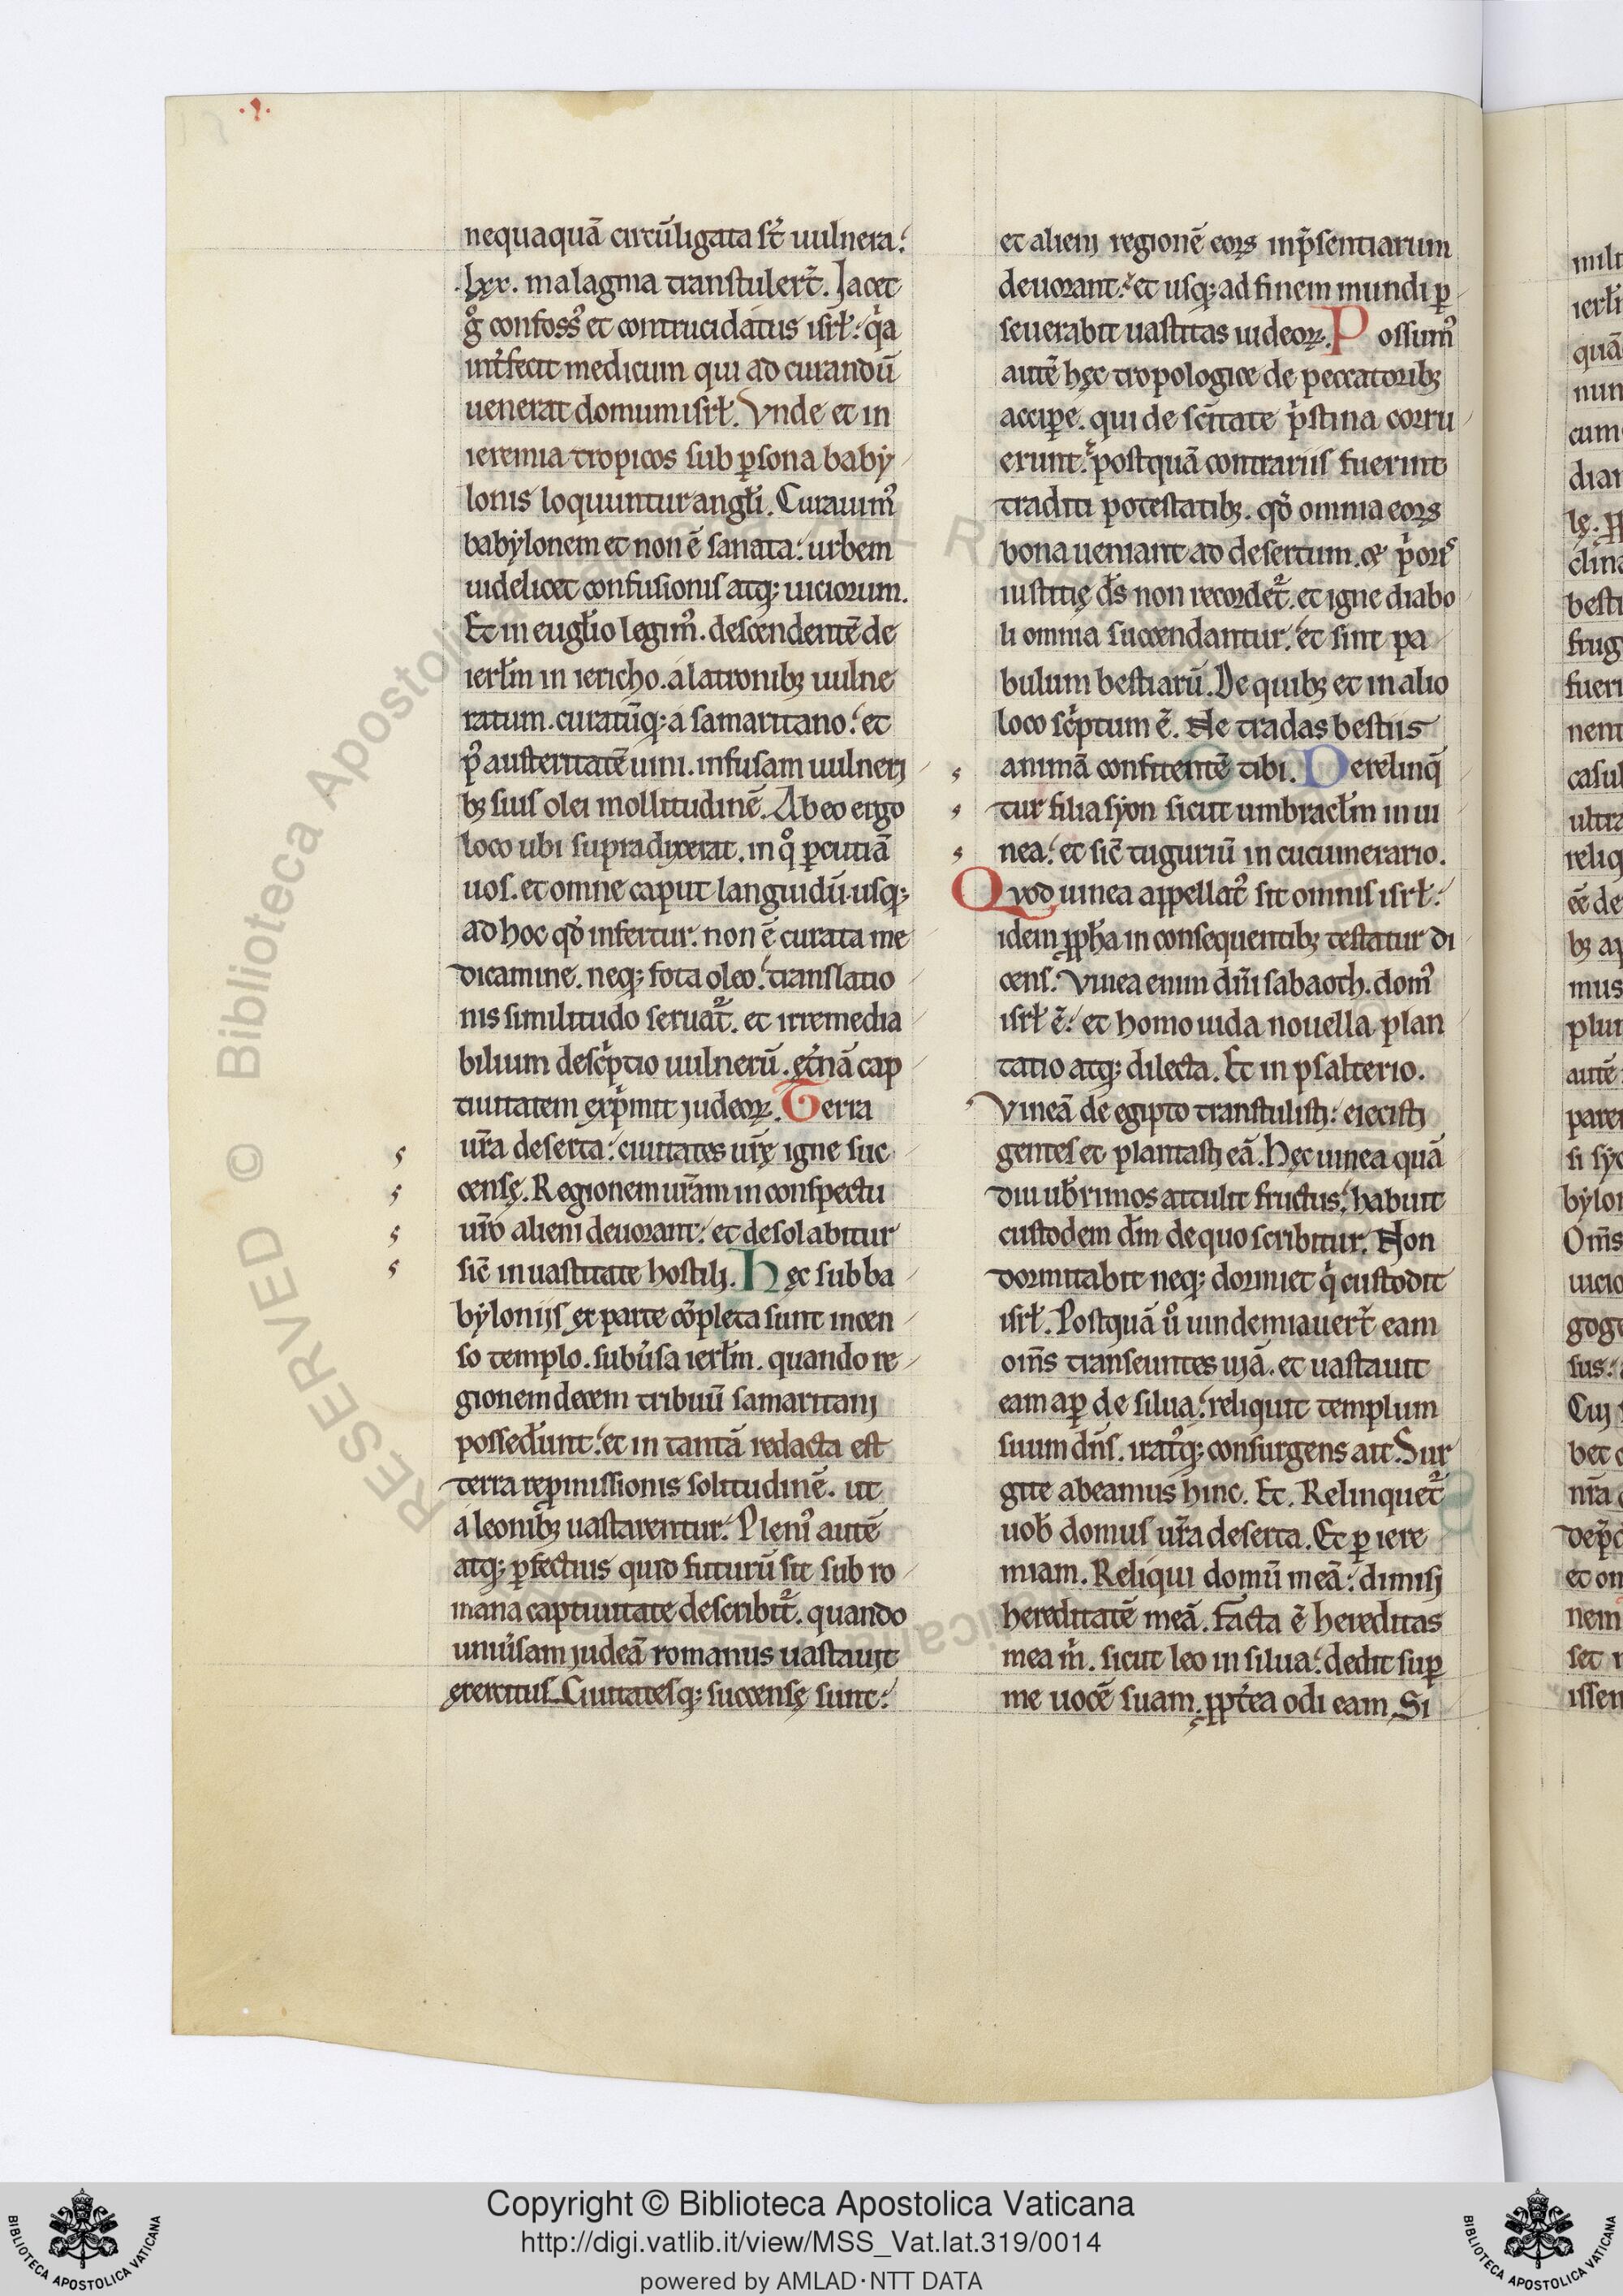 nequaquā circūligata st̄ uulnera.
.lxx. malagma transtulert̄. Iacet
g̊ confossꝰ et contrucidatus isrł. qͥa
int̄fecit medicum qui ad curandū
uenerat domum isrł. Vnde et in
ieremia tropicos sub ꝑsona baby
lonis loquuntur angłi. Curauimꝰ
babylonem et non ē sanata. urbem
uidelicet confusionis atq; uiciorum.
Et in eugło legimꝰ. descendentē de
ierłm in iericho. a latronibꝫ uulne
ratum. curatūq; a samaritano. et
pꝰ austeritatē uini. infusam uulneri
bꝫ sius olei mollitudinē. Ab eo ergo
loco ubi supra dixerat. in qͦ ꝑcutiā
uos. et omne caput languidū. usq;
ad hoc qđ infertur. non ē curata me
dicamine. neq; fota oleo. translatio
nis similitudo seruat᷑. et irremedia
bilium descͥptio uulnerū. et̄nā cap
tiuitatem exp̄mit iudeoꝝ. Terra
ur̄a deserta. ciuitates ur̄ę igne suc
censę. Regionem ur̄am in conspectu
ur̄o alieni deuorant. et desolabitur
sic̄ in uastitate hostili. Hęc sub ba
byloniis ex parte cōpleta sunt incen
so templo. subūsa ierłm. quando re
gionem decem tribuū samaritani
possederunt. et in tantā redacta est
terra repromissionis solitudinē. ut
a leonibꝫ uastarentur. Pleniꝰ autē
atq; ꝑfectius quid futurū sit sub ro
mana captiuitate describit᷑. quando
uniūsam iudeā romanus uastauit
exercitus. Ciuitatesq; succensę sunt.
et alieni regionē eoꝝ in p̄sentiarum
deuorant. et usq; ad finem mundi ꝑ
seuerabit uastitas iudeoꝝ. Possumꝰ
autē hęc tropologice de peccatoribꝫ
accipe. qui de sc̄itate pͥstina corru
erunt. postquā contrariis fuerint
traditi potestatibꝫ. qđ omnia eoꝝ
bona ueniant ad desertum. & pͥoris
iustitię ds̄ non recordet᷑. et igne diabo
li omnia succendantur. et sint pa
bulum bestiarū. De quibꝫ et in alio
loco scͥptum ē. Ne tradas bestiis
animā confitentē tibi. Derelinq̄
tur filia syon sicut umbracłm in ui
nea. et sic̄ tuguriū in cucumerario.
Quod uinea appellatꝰ sit omnis isrł.
idem ꝓpħa in consequentibꝫ testatur di
cens. Vinea enim dn̄i sabaoth. domꝰ
isrł ē. et homo iuda nouella plan
tatio atq; dilecta. Et in psalterio.
Vineā de egipto transtulisti. eiecisti
gentes et plantasti eā. Hęc uinea quā
diu ub̄rimos attulit fructus. habuit
custodem dm̄ de quo scribitur. Non
dormitabit neq; dormiet qͥ custodit
isrł. Postquā uͦ uindemiauert̄ eam
oms̄ transeuntes uiā. et uastauit
eam aꝑ de silua. reliquit templum
suum dn̄s. iratꝰq; consurgens ait. Sur
gite abeamus hinc. Et. Relinquet᷑
uob̄ domus ur̄a deserta. Et ꝑ iere
miam. Reliqui domū meā. dimisi
hereditatē meā. Facta ē hereditas
mea m̄. sicut leo in silua. dedit suꝑ
me uocē suam. ꝓpt̄ea odi eam. Si
Copyright © Biblioteca Apostolica Vaticana
http://digi.vatlib.it/view/MSS_Vat.lat.319/0014
powered by AMLAD·NTT DATA